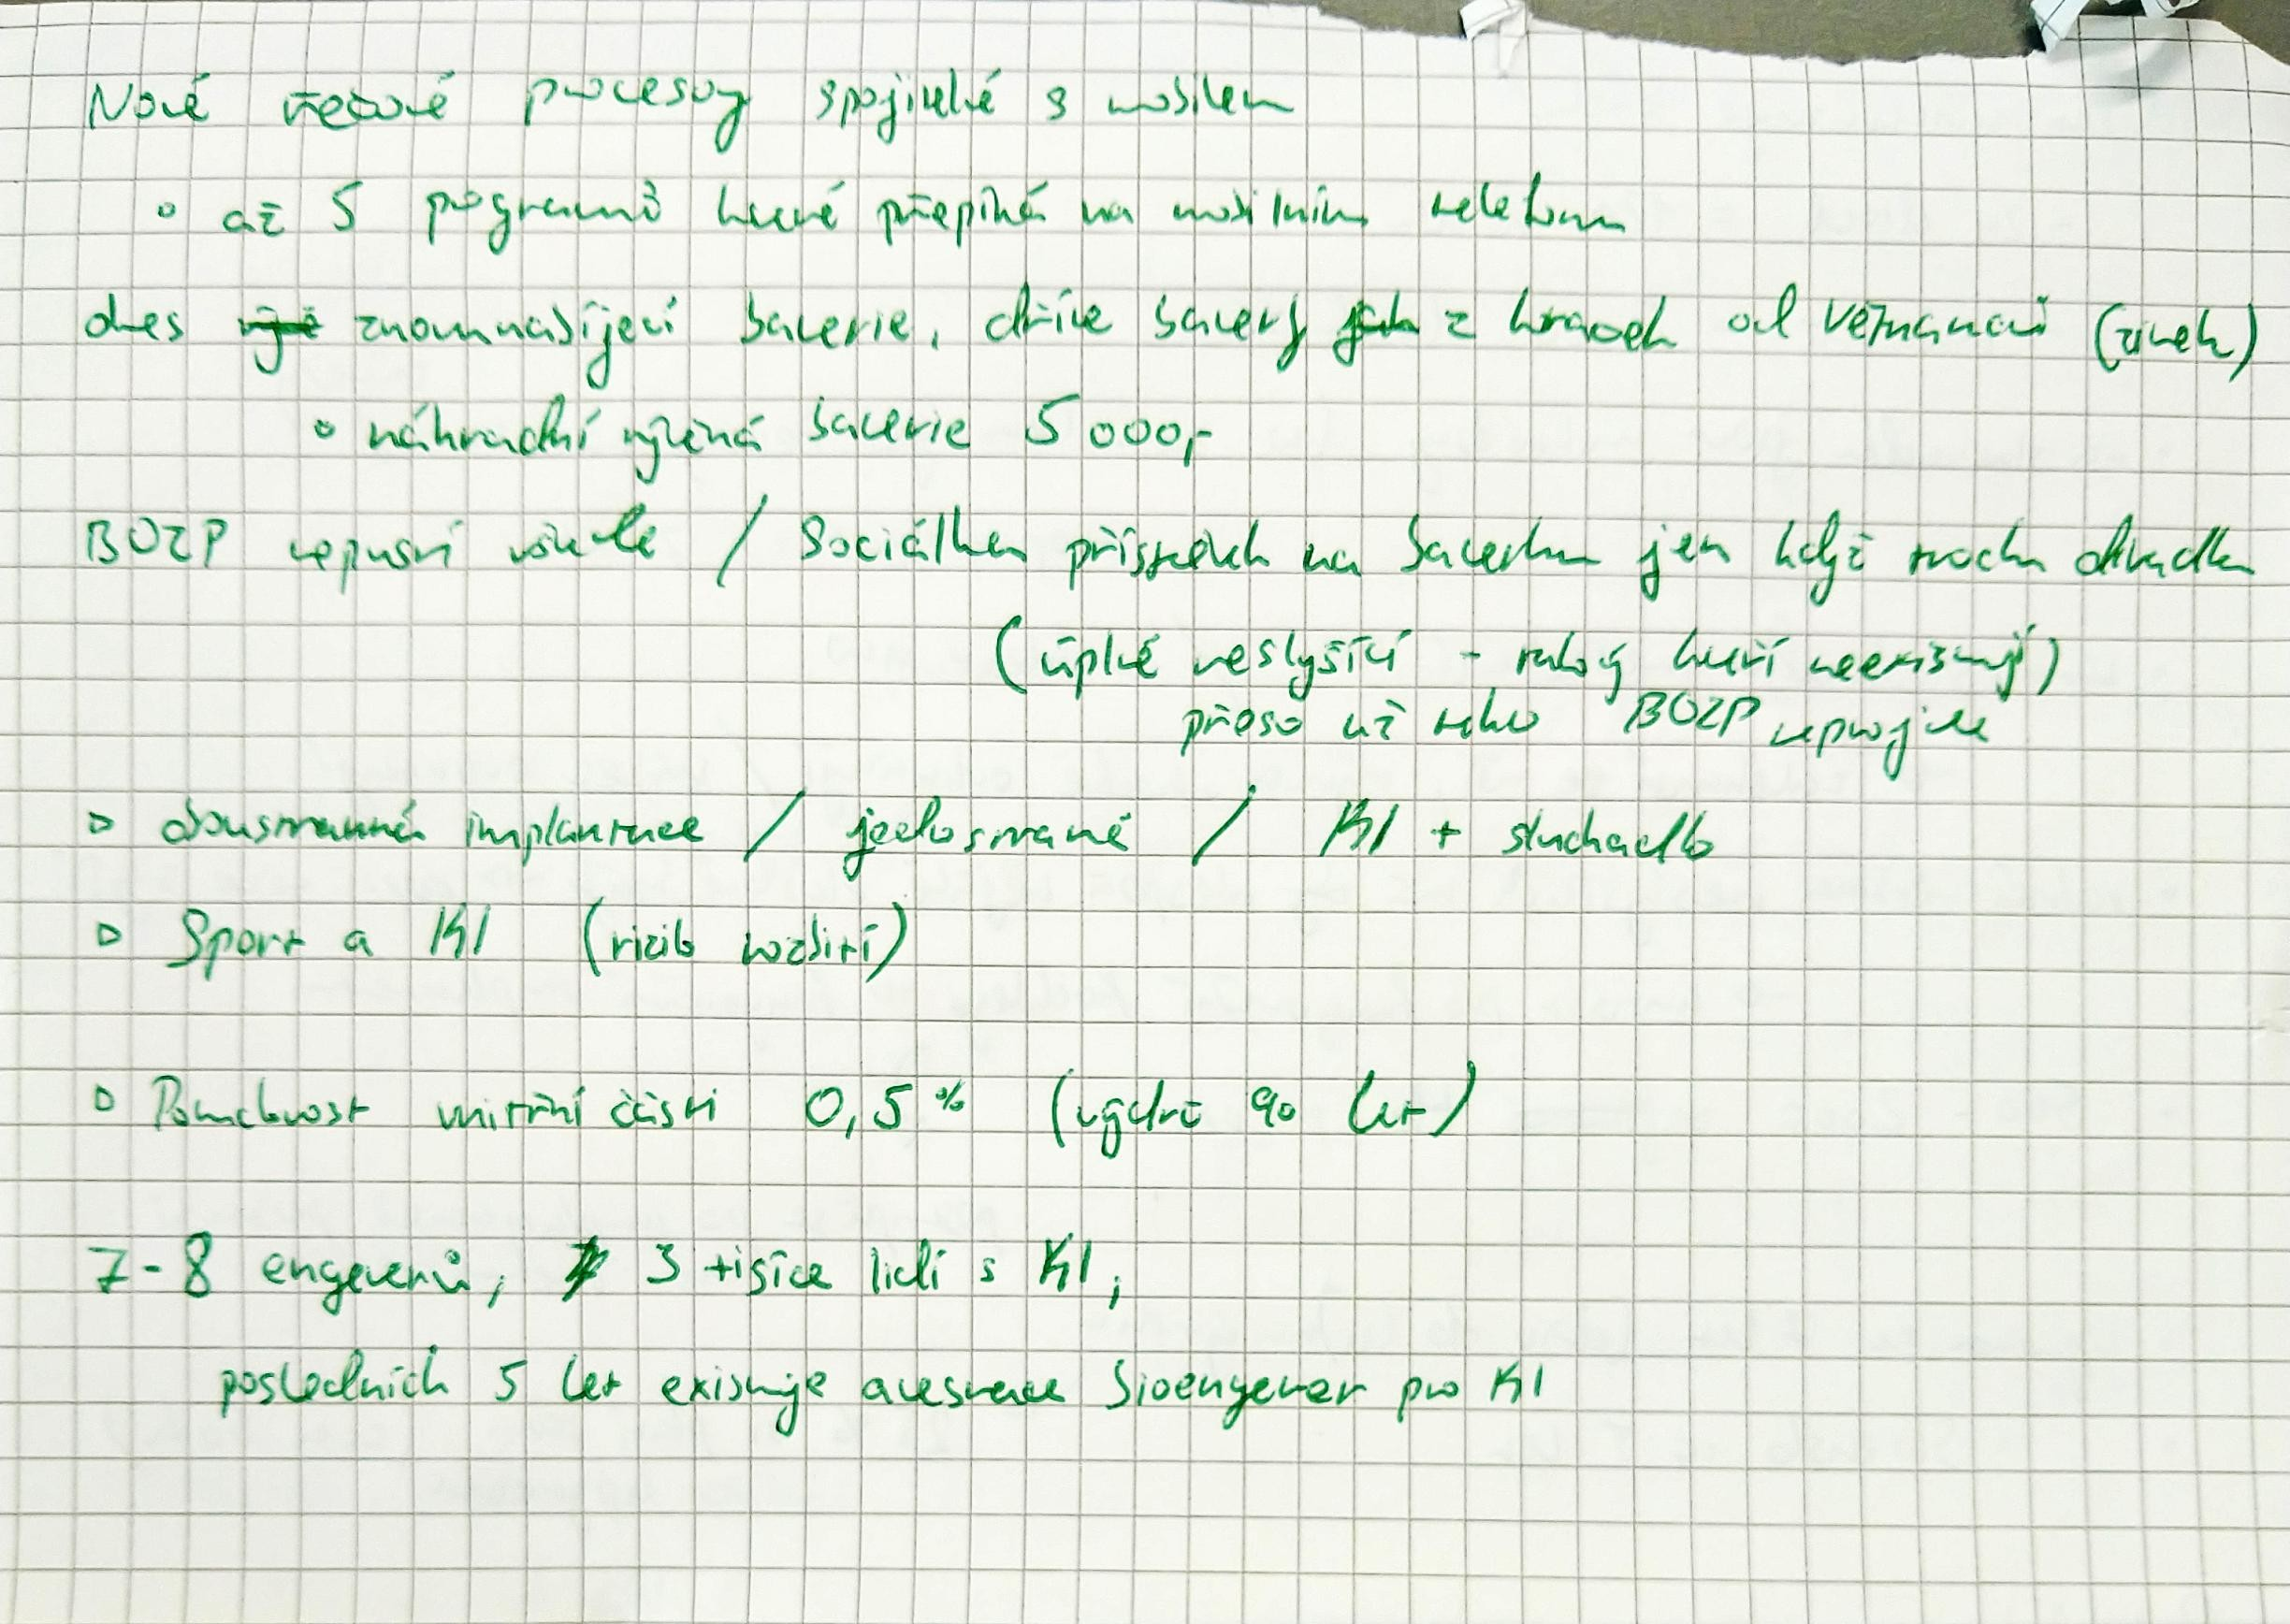 Nové řečové procesory spojitelné s mobilem
◦ až 5 programů které přepíná na mobilním telefonu
dnes znovunabíjecí baterie, dříve baterky z hraček od větnamců (zinek)
◦ náhradní výživná baterie 5 000,-
BOZP nepustí / Sociálka příspěvek na baterku jen když trochu divadlo
(úplně neslyšící - takový lidi neexistují)
přeso už toho BOZP neprojde
▹ oboustranná implantace / jednostranné / KI + sluchadlo
▹ Sport a KI (riziko rozbití)
▹ Poruchovost vnitřní části 0,5 % (výdrž 90 let)
7-8 engenerů, 3 tisíce lidí s KI,
posledních 5 let existuje atestace bioengener pro KI